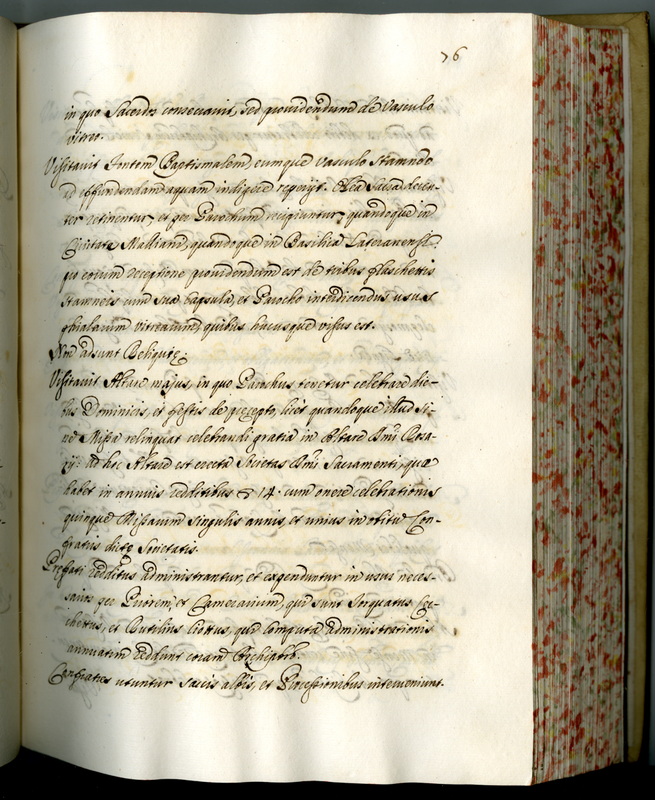 76
in quo Sacerdos consecravit, sed providendum de Vasculo
vitreo.
Visitavit Fontem Baptismalem, eumque vasculo stamneo
ad effundendam aquam indigere reperijt. Olea Sacra decen-
ter retinentur, et per Parochum recipiuntur, quandoque in
Civitate Malliani, quandoque in Basilica Lateranensi.
pro eorum receptione providendum est de tribus flaschettis
stamneis cum sua capsula, et Parocho interdicendus usus
phialarum vitrearum, quibus hucusque usus est.
Non adsunt Reliquię.
Visitavit Altare majus, in quo Parochus tenetur celebrare die-
bus Dominicis, et festis de precepto, licet quandoque illud si-
ne Missa relinquat celebrandi gratia in Altare Smi Rosa-
rij: ad hoc Altare est erecta Societas Smi Sacramenti, quæ
habet in annuis redditibus 14 cum onere celebrationis
quinque Missarum singulis annis, et unius in obitu Con-
fratris dictę Societatis.
Prefati redditus administrantur, et expenduntur in usus neces-
sarios per Priorem, et Camerarium, qui sunt Torquatus
et Rutilius qui computa administrationis
annuatim reddunt coram Archipbro.
Confratres utuntur saccis albis, et Processionibus interveniunt.